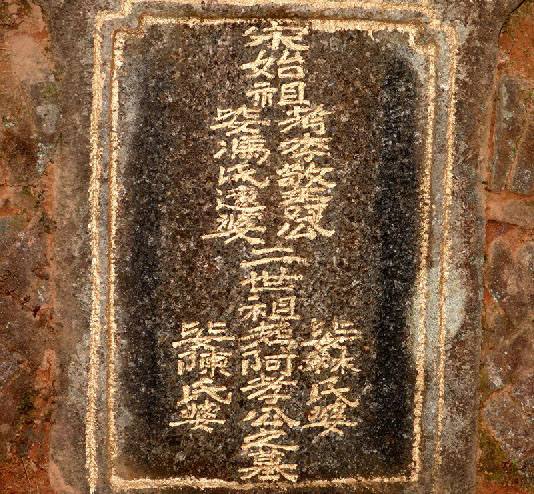 宋始祖
考李敬堂公
妣馮氏婆
二世祖考阿孝公之墓
妣蘇氏婆
妣陳氏婆